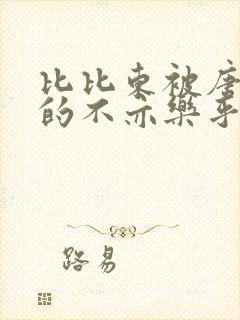 比比东被唐
的不亦乐乎
路易